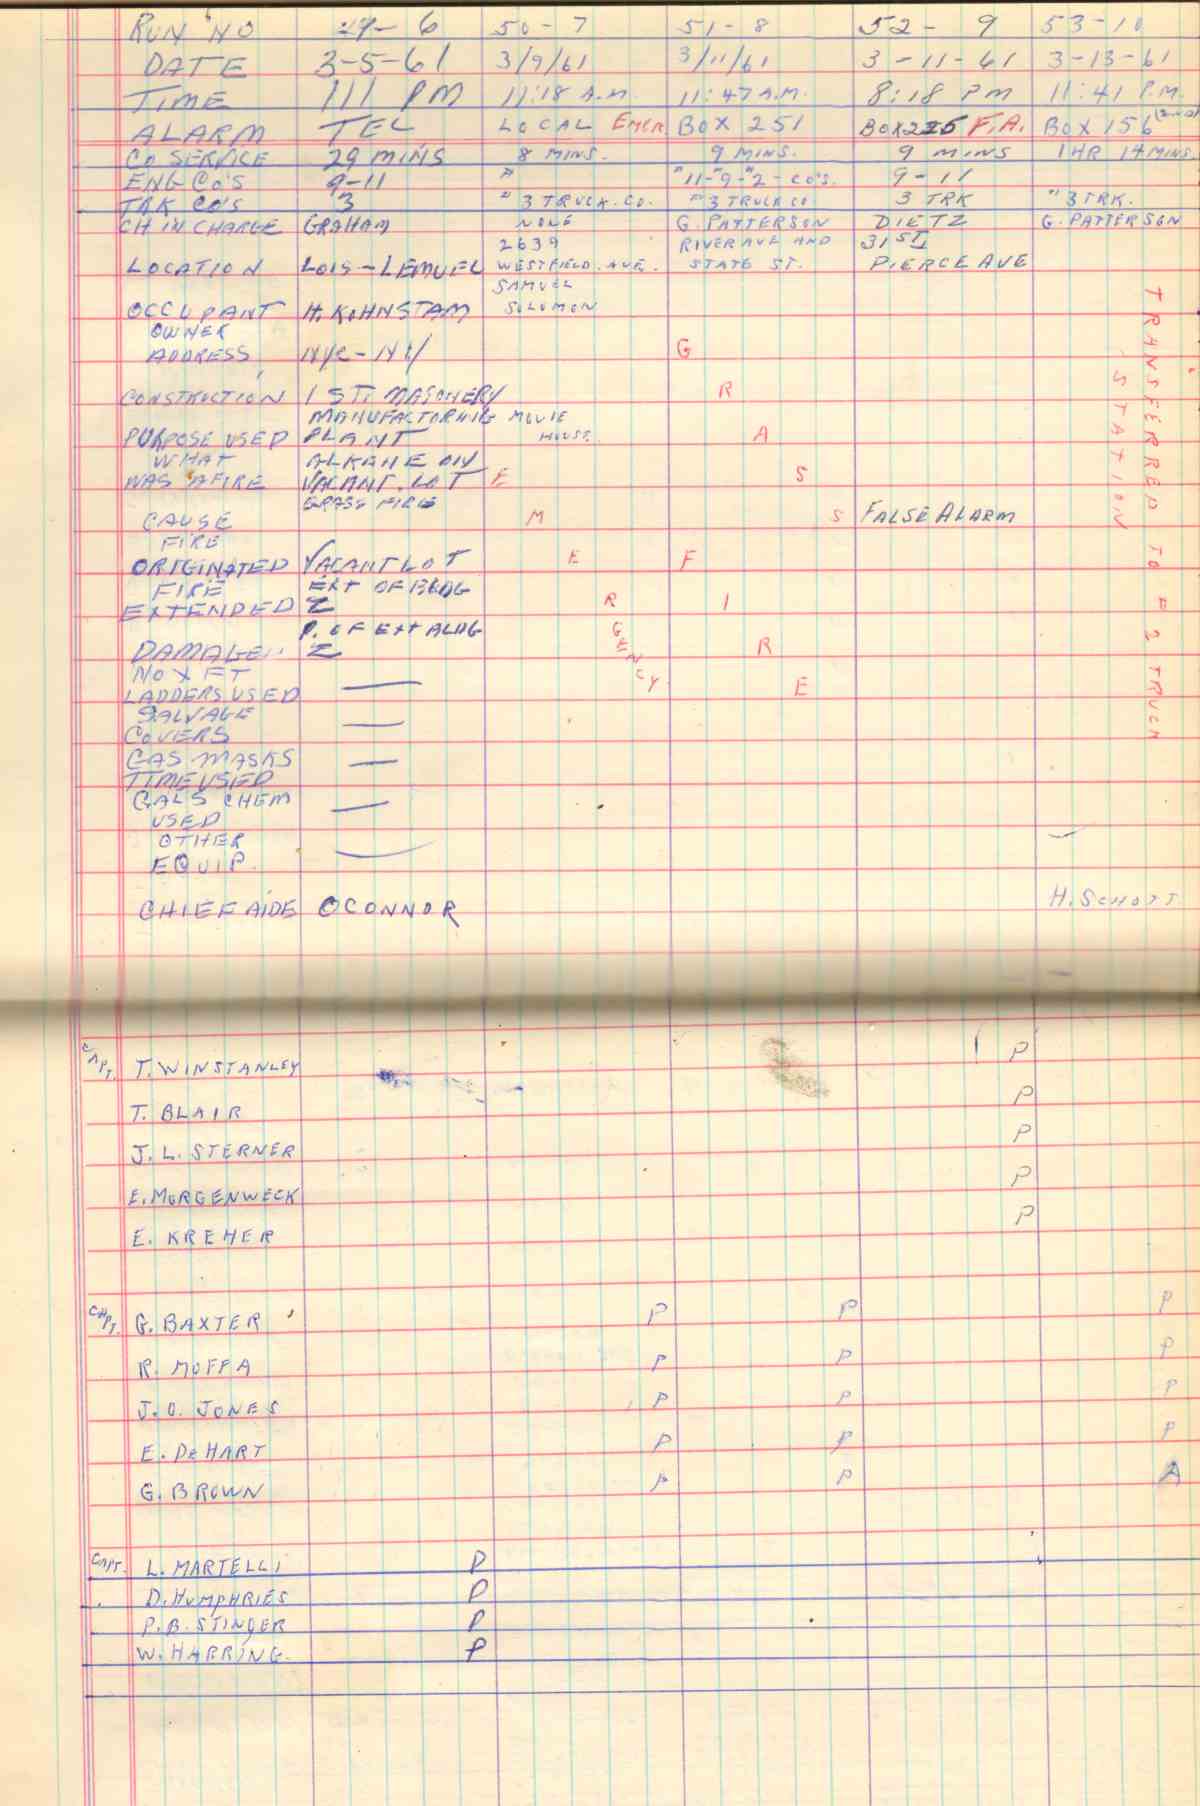 RUN NO 49-6 50-7 51-8 52-9 53-10
DATE 3-5-61 3/9/61 3/11/61 3-11-61 3-13-61
TIME 111 PM 11:18 A.M. 11:47 A.M. 8:18 PM 11:41 P.M.
ALARM TEL LOCAL EMER. BOX 251 BOX 225 F.A. BOX 156 (2nd)
CO SERVICE 29 MINS 8 MINS. 9 MINS. 9 MINS 1 HR 14 MINS.
ENG CO'S 9-11 " "11-"9-"2-CO'S. 9-11
TRK CO'S 3 "3 TRUCK.CO. "3 TRUCK CO 3 TRK "3 TRK.
CH IN CHARGE GRAHAM NONE G. PATTERSON DIETZ G. PATTERSON
2639 RIVER AVE AND 31ST
LOCATION LOIS-LEMUEL WESTFIELD.AVE. STATE ST. PIERCE AVE
SAMUEL
OCCUPANT H. KOHNSTAM SOLOMON
OWNER
ADDRESS NYC-NY
CONSTRUCTION 1 ST. MASONERY
MANUFACTORING MOVIE
PURPOSE USED PLANT HOUSE.
WHAT ALKENE DIV
WAS AFIRE VACANT.LOT
GRASS FIRE
CAUSE FALSE ALARM
FIRE
ORIGINATED VACANT LOT
FIRE EXT OF BLDG
EXTENDED 2
P. OF EXT BLDG
DAMAGE 2
NO X FT
LADDERS USED —
SALVAGE
COVERS —
GAS MASKS —
TIME USED
GALS CHEM —
USED
OTHER
EQUIP. —
CHIEF AIDE OCONNOR H. SCHOTT
EMERGENCY
GRASS
FIRE
TRANSFERRED TO # 2 TRUCK
STATION
CAPT. T. WINSTANLEY P
T. BLAIR P
J. L. STERNER P
E. MORGENWECK P
E. KREHER P
CAPT. G. BAXTER P P P
R. MOFFA P P P
J. O. JONES P P P
E. DEHART P P P
G. BROWN P P A
CAPT. L. MARTELLI P
D. HUMPHRIES P
P. B. STINGER P
W. HARRING. P